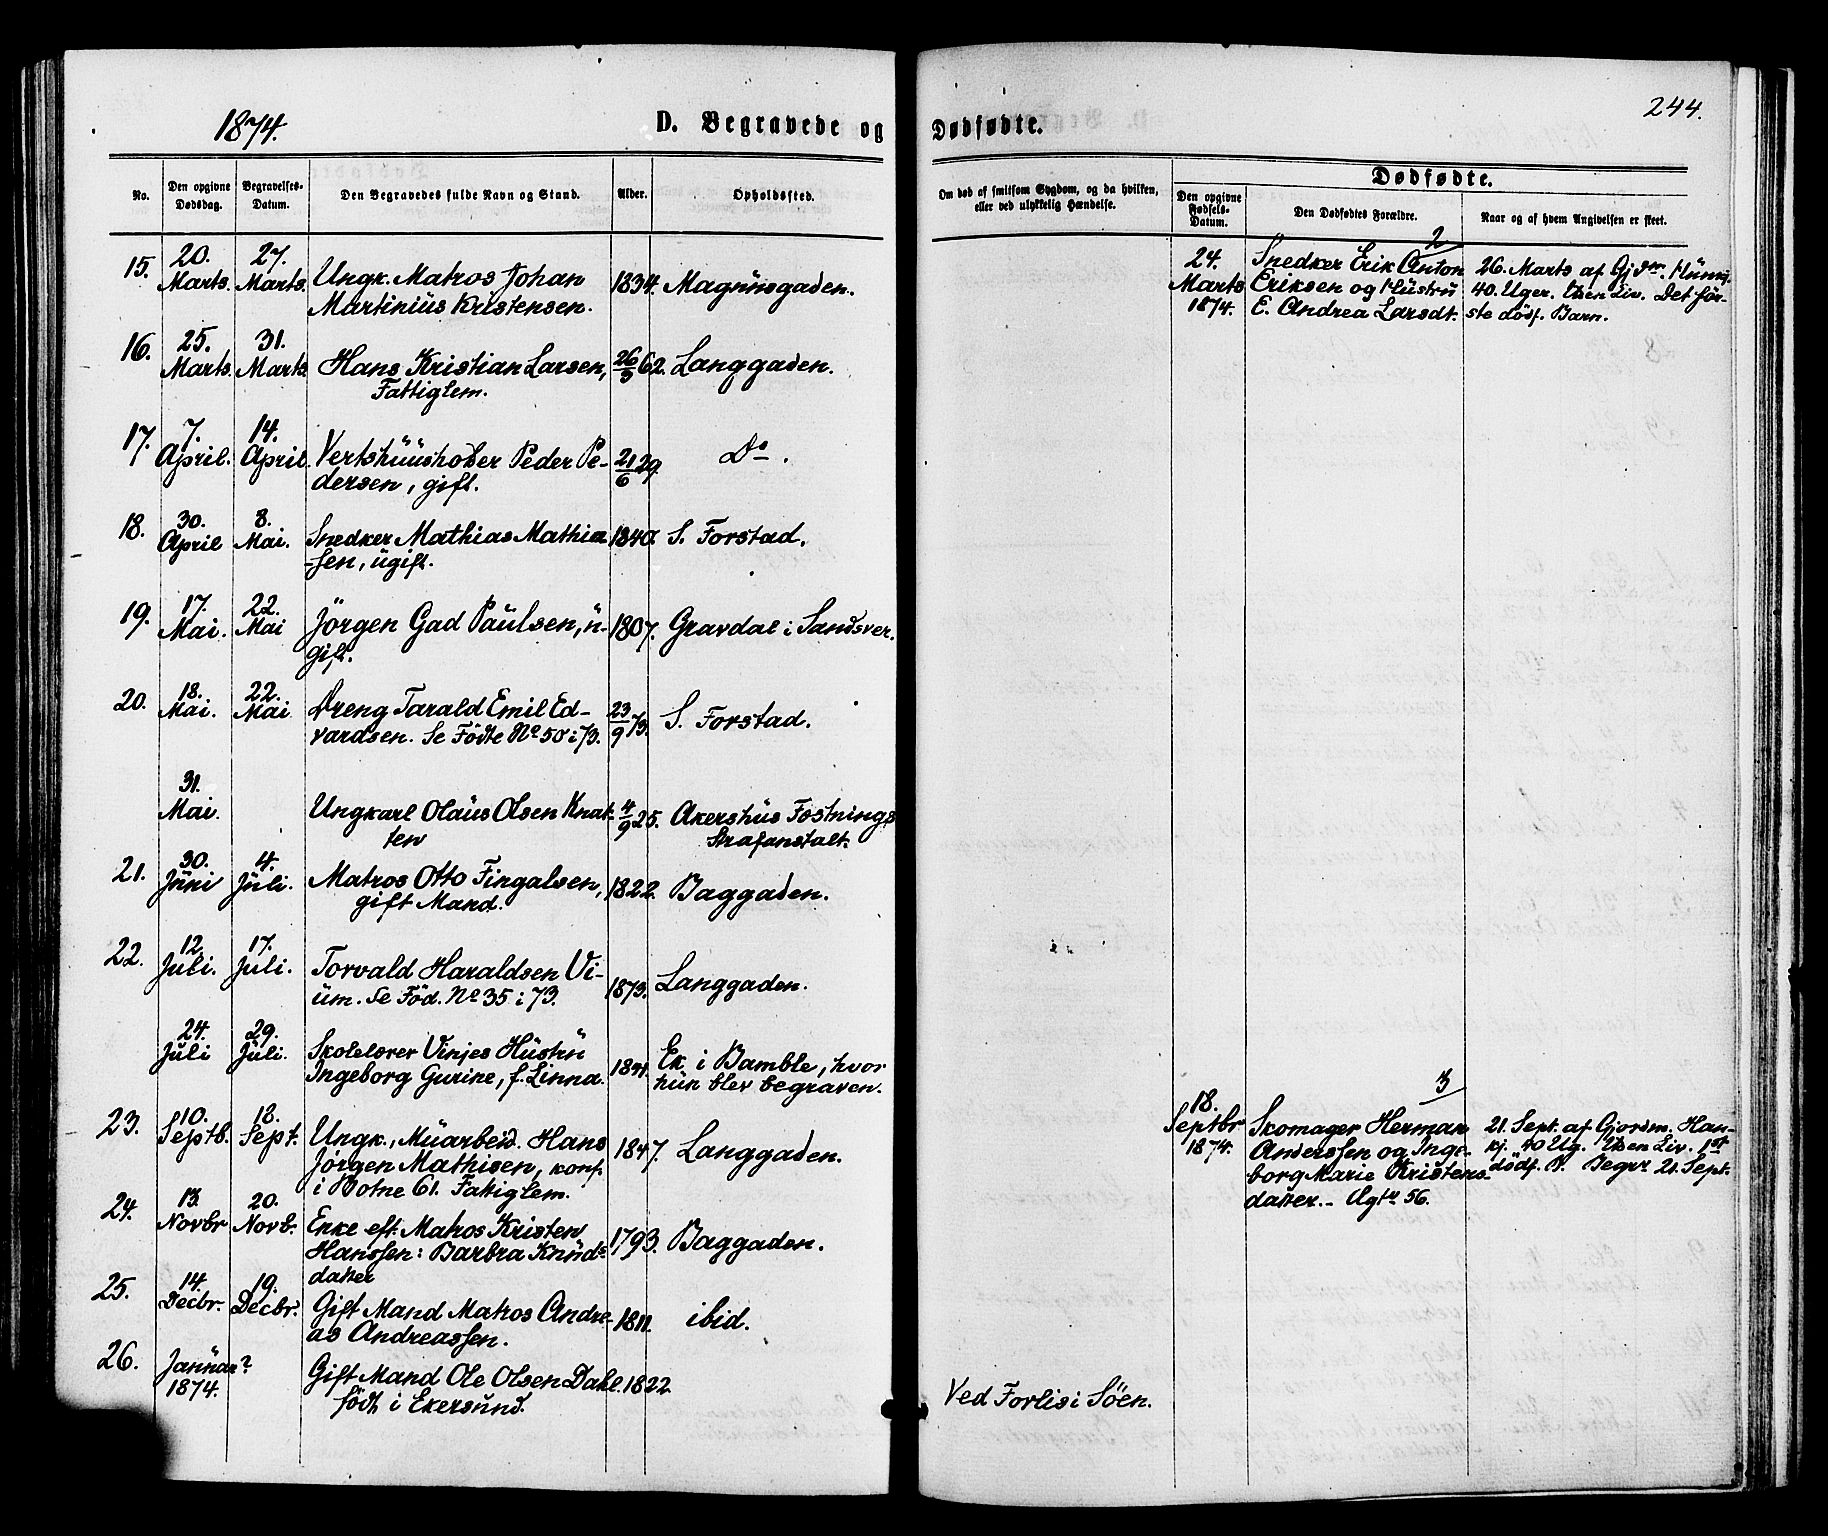 1874.
D. Begravede og
Dødfødte.
244.
No.
Den opgivne
Dødsdag.
Begravelses-
Datum.
Den Begravedes fulde Navn og Stand.
Alder.
Opholdssted.
Om død af smitsom Sygdom, og da hvilken,
eller ved ulykkelig Hændelse.
Dødfødte.
Den opgivne
Fødsels-
Datum.
Den Dødfødtes Forældre.
Naar og af hvem Angivelsen er skeet.
15. 20. Marts. 27. Marts.
Ungk. Matros Johan
Martinius Kristensen.
1834. Magnusgaden.
16. 25. Marts. 31. Marts.
Hans Kristian Larsen,
Fattiglem.
26/3 62. Langgaden.
17. 7. April. 14. April.
Vertshuusholder Peder Pe-
dersen, gift.
21/6 29. Do.
18. 30. April 8. Mai.
Snedker Mathias Mathia-
-sen, ugift.
1840. S. Forstad.
19. 17. Mai. 22. Mai
Jörgen Gad Paulsen, u-
gift.
1807. Gravdal i Sandsver.
20. 18. Mai. 22. Mai
Dreng Tarald Emil Ed-
vardsen. Se Födte No 50 i 73.
23/9 73. S. Forstad.
31. Mai.
Ungkarl Olaus Olsen Knat-
ten
4/9 25. Akershus Fæstnings
Strafanstalt.
21. 30. Juni 4. Juli.
Matros Otto Fingalsen,
gift Mand.
1822. Baggaden.
22. 12. Juli. 17. Juli.
Torvald Haraldsen Vi-
um. Se Föd. No 35 i 73.
1873. Langgaden.
24. Juli 29. Juli.
Skolelærer Vinjes Hustru
Ingeborg Gurine, f. Linna.
1841. Ek i Bamble, hvor
hun blev begraven.
23. 10. Septb. 18. Sept.
Ungk., Muarbeid. Hans
Jørgen Mathisen, konf.
i Botne 61. Fattiglem.
1847. Langgaden.
24. 13. Novbr 20. Novb.
Enke eft. Matros Kristen
Hanssen: Barbra Knuds-
datter
1793. Baggaden.
25. 14. Decbr. 19. Decbr.
Gift Mand Matros Andre-
as Andreassen.
1811. ibid.
26. Januar? 1874.
Gift Mand Ole Olsen Dahl.
födt i Ekersund.
1822.
Ved Forlis i Söen.
2
24.
Marts
1874.
Snedker Erik Anton
Eriksen og Hustru
E. Andrea Larsdt.
26. Marts af Gjdm.
40. Uger. Uden Liv. Det för-
ste dödf. Barn.
3
18.
Septbr
1874.
Skomager Herman
Anderssen og Inge-
borg Marie Kristens-
datter. - Ugtr 56.
21. Sept. af Gjordm. Han-
kj. 40 Ug. Uden Liv. 1st
dödf. B. Begrr 21. Sept.